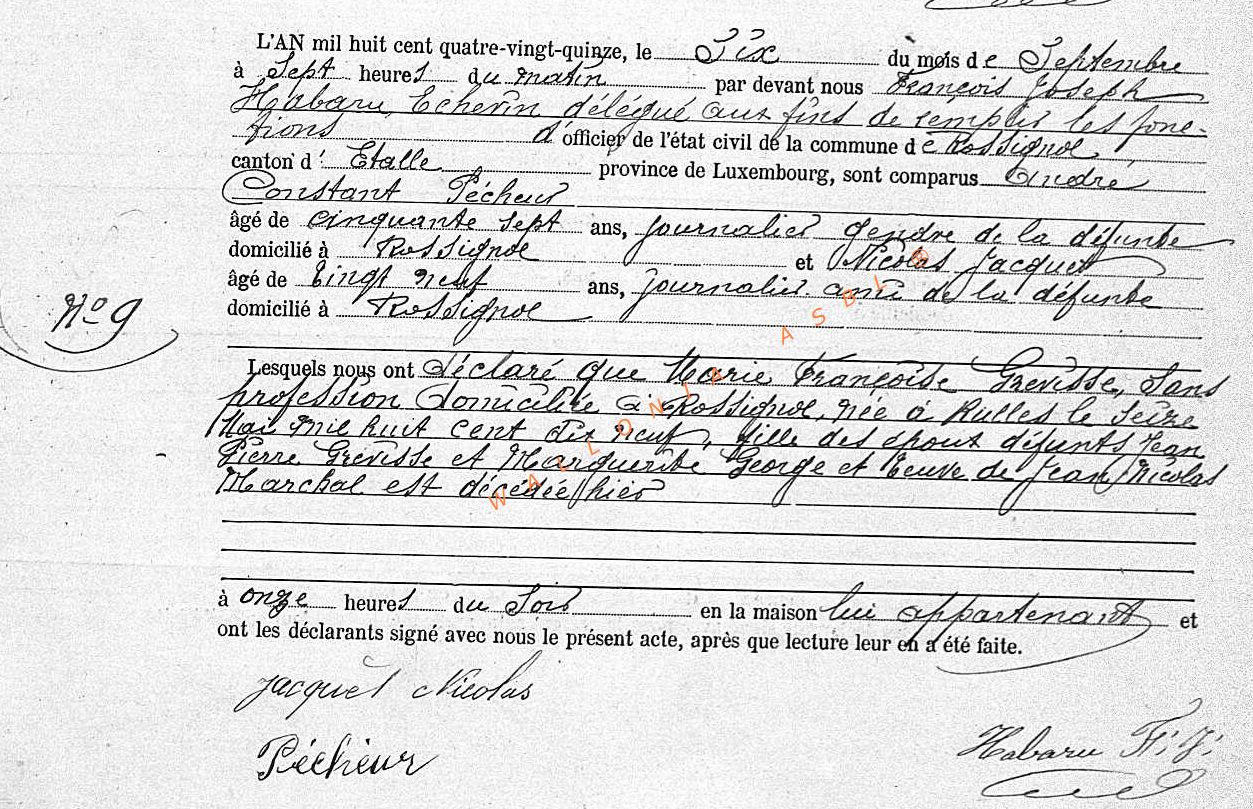 L'AN mil huit cent quatre-vingt-quinze, le Six du mois de Septembre
à Sept heures du matin par devant nous François Joseph
Habaru, Echevin délégué aux fins de remplir les fonc-
tions d'officier de l'état civil de la commune de Rossignol,
canton d'Etalle province de Luxembourg, sont comparus André
Constant Pécheur
âgé de cinquante sept ans, journalier gendre de la défunte
domicilié à Rossignol et Nicolas Jacquet
âgé de vingt neuf ans, journalier ami de la défunte
domicilié à Rossignol
N° 9
Lesquels nous ont déclaré que Marie Françoise Grévisse, sans
profession domiciliée à Rossignol, née à Rulles le seize
Mai mil huit cent dix neuf, fille des époux défunts Jean
Pierre Grévisse et Marguerite George et veuve de Jean Nicolas
Marchal est décédée hier
à onze heures du soir en la maison lui appartenant et
ont les déclarants signé avec nous le présent acte, après que lecture leur en a été faite.
Jacquet Nicolas
Pécheur
Habaru F. J.
WALLONIA ASBL ©